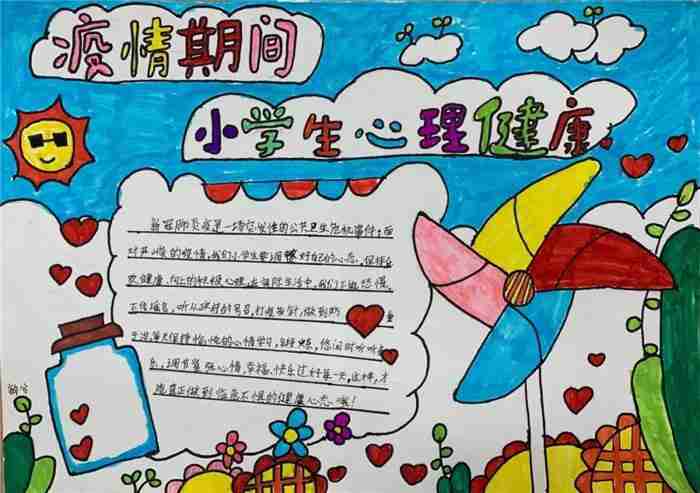 疫情期间
小学生心理健康
新冠肺炎疫是一场突发性的公共卫生危机事件,面
对严峻的疫情,我们小学生要调整好自己的心态,保持
健康、向上的积极心理。在实际生活中,我们不恐慌、
不传谣言,听从学校的号召,打
每天保持愉悦的心情学习、锻炼,悠闲时听听音
乐,调节紧张心情,幸福、快乐过好每一天,这样,才
能真正做到临危不惧的健康心态,哦!